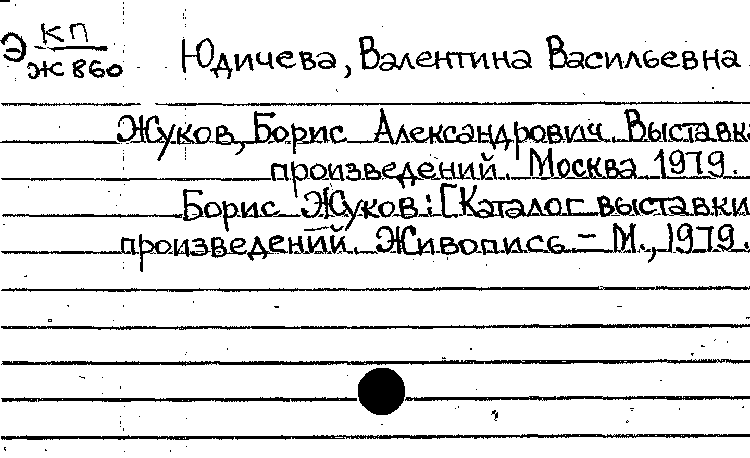 Э КП
Ж860 Юдичева, Валентина Васильевна
Жуков, Борис Александрович. Выставк
произведений. Москва 1979.
Борис Жуков: [Каталог выставки
произведений. Живопись – М., 1979.